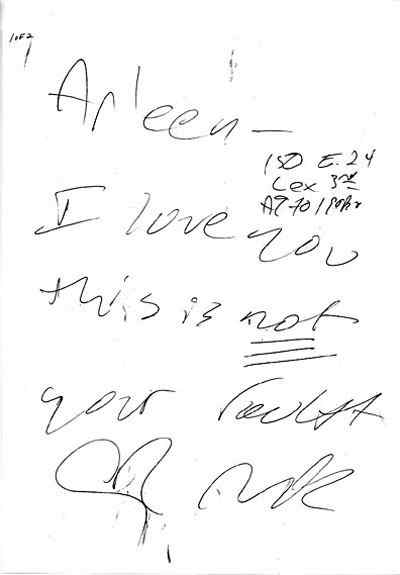 1 of 2
Arleen —
150 E. 24
Lex 3rd
I love you
this is not
your fault